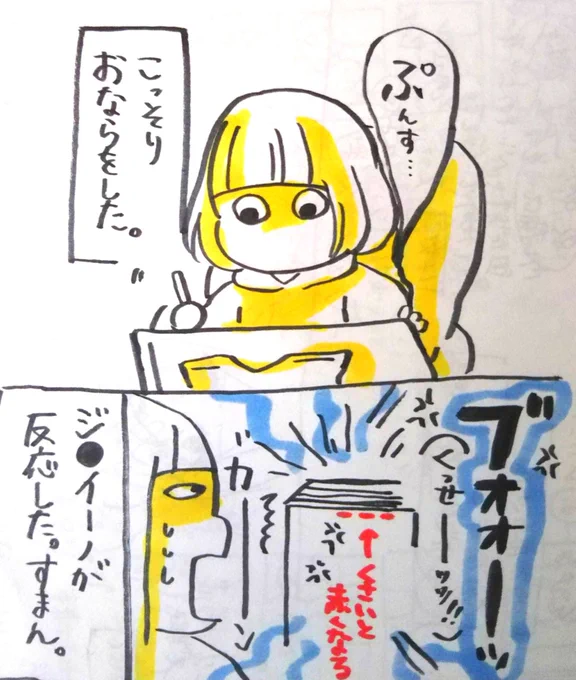 ぷんす…
こっそり
おならをした。
ブオオーッ
(くっせーッッ!!)
↑くさいと
赤くなる
ガーン
ジ●イーノが
反応した。すまん。